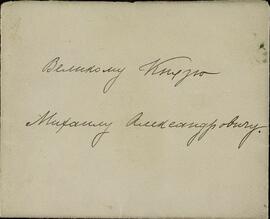 Великому Князю
Михаилу Александровичу.